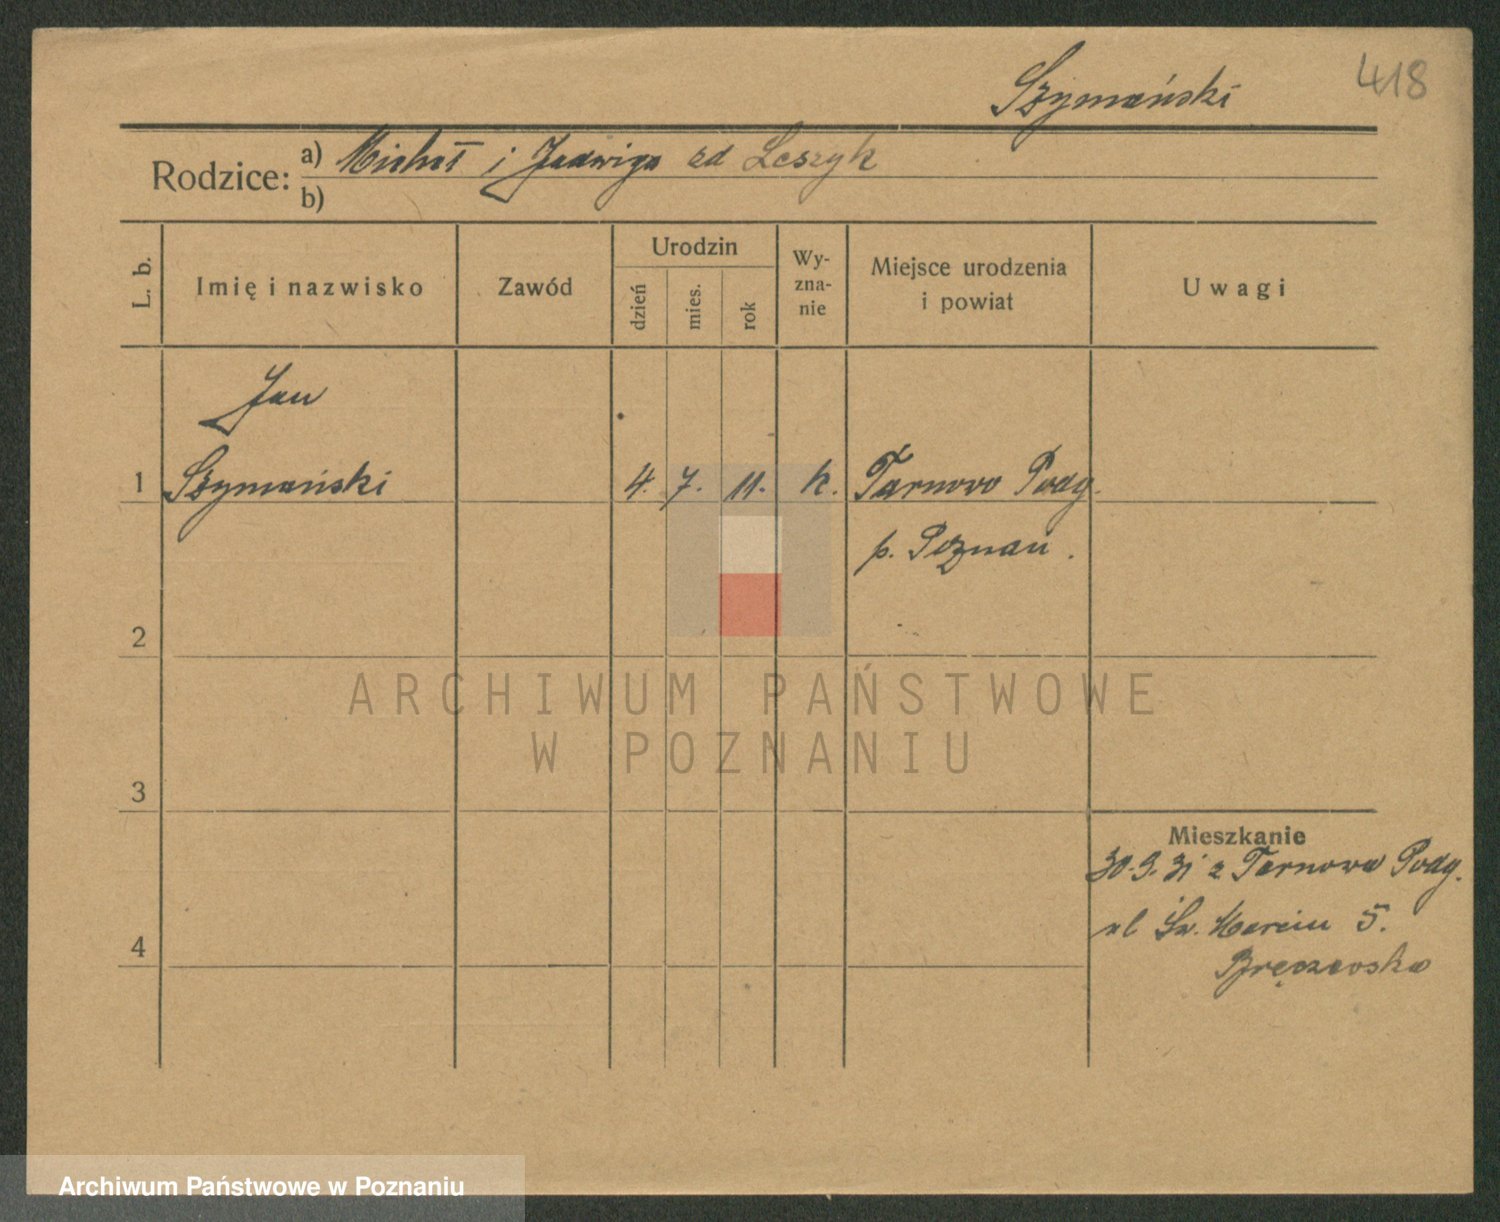 418
Szymański
Rodzice: a) Michał i Jadwiga zd Leszyk
b)
L. b.
Imię i nazwisko
Zawód
Urodzin
dzień
mies.
rok
Wy-
zna-
nie
Miejsce urodzenia
i powiat
Uwagi
Jan
1 Szymański 4. 7. 11. k. Tarnowo Podg.
p. Poznań.
2
ARCHIWUM PAŃSTWOWE
W POZNANIU
3
Mieszkanie
30.9.31 z Tarnowa Podg.
ul Św. Marcin 5.
4
Archiwum Państwowe w Poznaniu